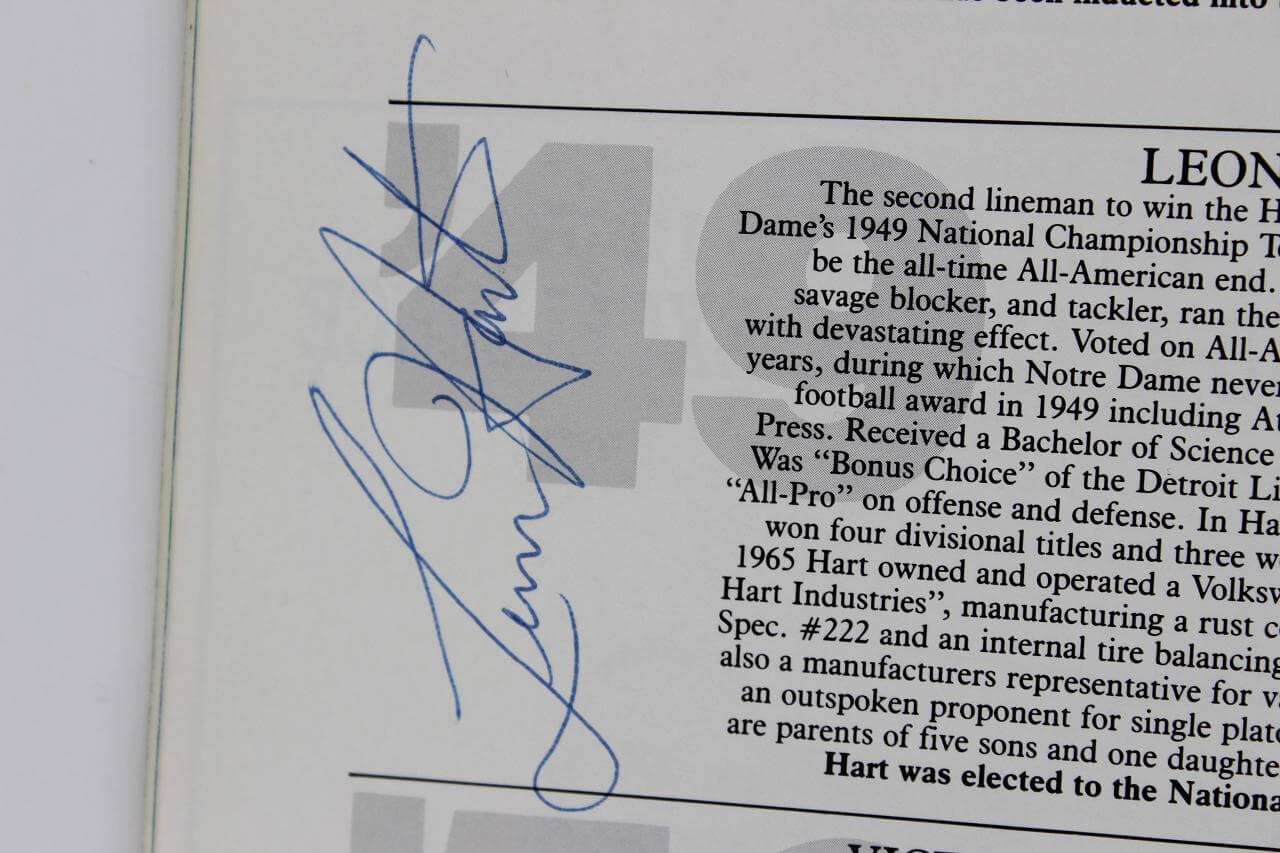 been inducted into
'49
Leon Hart
LEON
The second lineman to win the H
Dame's 1949 National Championship Te
be the all-time All-American end.
savage blocker, and tackler, ran the
with devastating effect. Voted on All-A
years, during which Notre Dame never
football award in 1949 including At
Press. Received a Bachelor of Science
Was “Bonus Choice” of the Detroit Li
“All-Pro” on offense and defense. In Ha
won four divisional titles and three w
1965 Hart owned and operated a Volksw
Hart Industries”, manufacturing a rust c
Spec. #222 and an internal tire balancing
also a manufacturers representative for va
an outspoken proponent for single plato
are parents of five sons and one daughte
Hart was elected to the Nationa